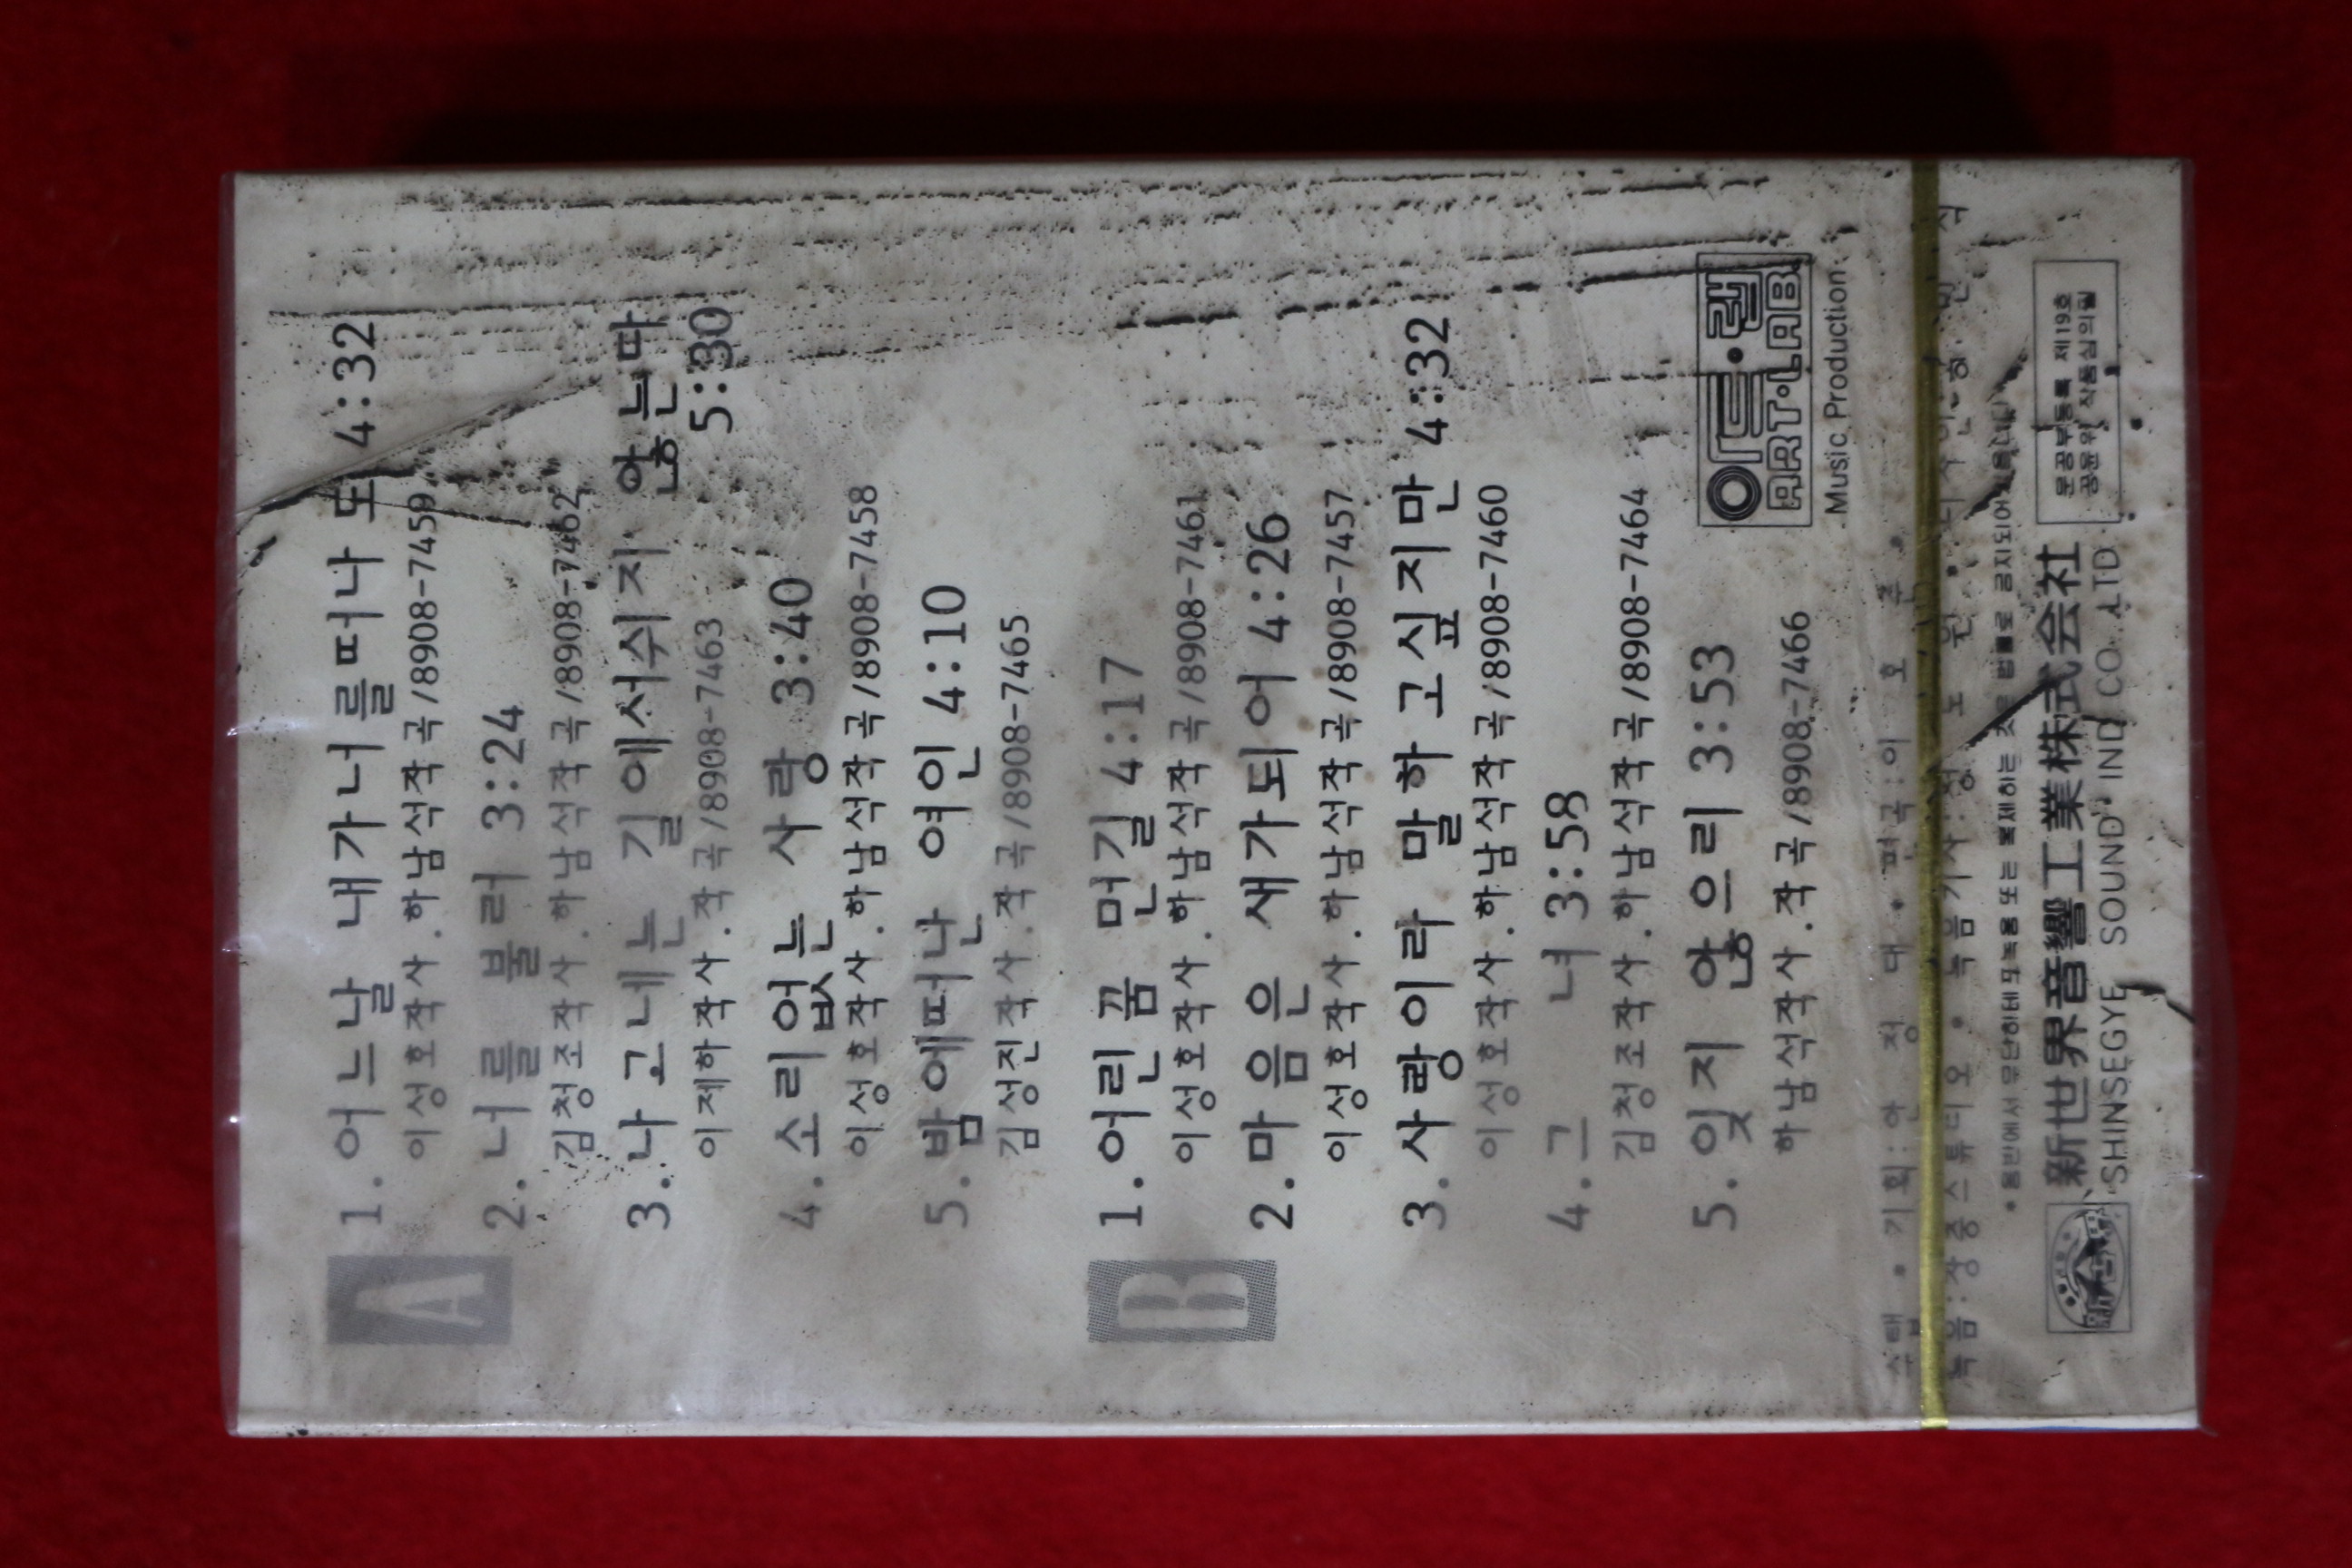 A
1. 어느날 내가너를떠나도 4:32
이성호작사.하남석작곡/8908-7459
2. 너를 불러 3:24
김청조작사.하남석작곡/8908-7462
3. 나그네는 길에서쉬지 않는다 5:30
이제하작사.작곡/8908-7463
4. 소리없는 사랑 3:40
이성호작사.하남석작곡/8908-7458
5. 밤에떠난 여인 4:10
김성진작사.작곡/8908-7465
B
1. 어린 꿈 먼길 4:17
이성호작사.하남석작곡/8908-7461
2. 마음은 새가되어 4:26
이성호작사.하남석작곡/8908-7457
3. 사랑이라 말하고싶지만 4:32
이성호작사.하남석작곡/8908-7460
4. 그 녀 3:58
김청조작사.하남석작곡/8908-7464
5. 잊지 않으리 3:53
하남석작사.작곡/8908-7466
아트·랩
ART·LAB
Music Production
기획:안 정 대 • 편곡:이 호 준
녹음:장충스튜디오 • 녹음기사:정 도 원
•음반에서 무단히테프녹음 또는 복제하는 것은 법률로 금지되어
新世界音響工業株式会社
SHINSEGYE SOUND IND CO.,LTD
문공부등록 제19호
공윤위 작품심의필